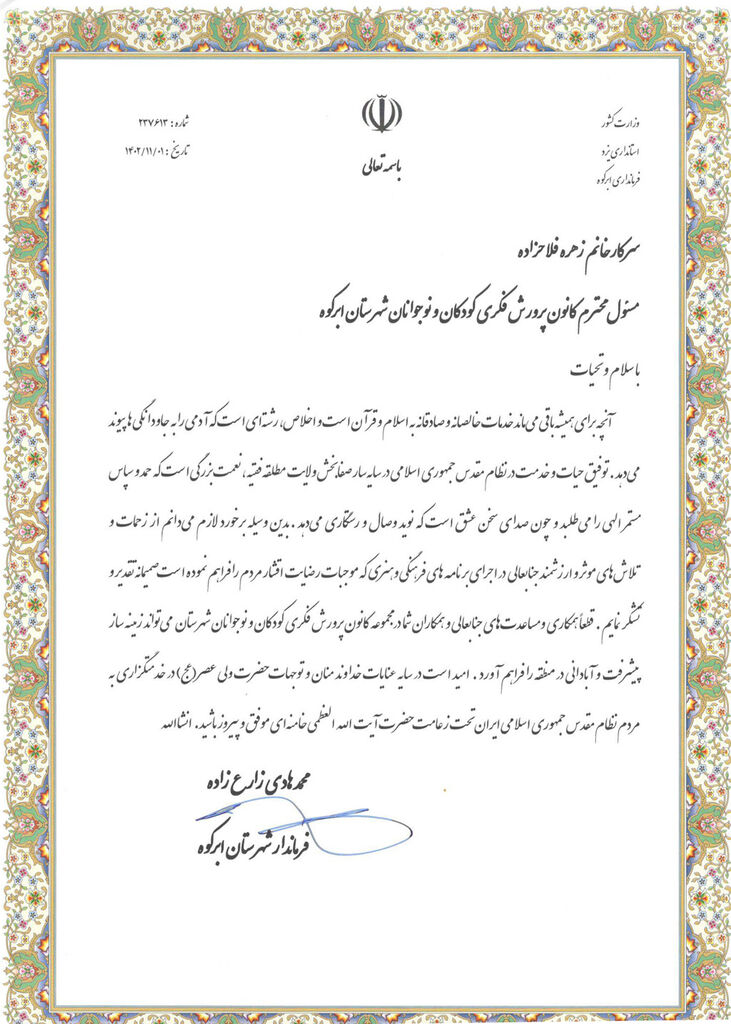 وزارت کشور
استانداری یزد
فرمانداری ابرکوه
شماره : ۲۳۷۶۱۳
تاریخ : ۱۴۰۲/۱۱/۰۱
باسمه تعالی
سرکار خانم زهره فلاحزاده
مسئول محترم کانون پرورش فکری کودکان و نوجوانان شهرستان ابرکوه
با سلام و تحیات
آنچه برای همیشه باقی می‌ماند خدمات خالصانه و صادقانه به اسلام و قرآن است و اخلاص، رشته‌ای است که آدمی را به جاودانگی‌ها پیوند
می‌دهد . توفیق حیات و خدمت در نظام مقدس جمهوری اسلامی در سایه سار صفابخش ولایت مطلقه فقیه، نعمت بزرگی است که حمد و سپاس
مستمر الهی را می‌طلبد و چون صدای سخن عشق است که نوید وصال و رستگاری می‌دهد . بدین وسیله برخورد لازم می‌دانم از زحمات و
تلاش های موثر و ارزشمند جنابعالی در اجرای برنامه های فرهنگی و هنری که موجبات رضایت اقشار مردم را فراهم نموده است صمیمانه تقدیر و
تشکر نمایم . قطعاً همکاری و مساعدت های جنابعالی و همکاران شما در مجموعه کانون پرورش فکری کودکان و نوجوانان شهرستان می‌تواند زمینه ساز
پیشرفت و آبادانی در منطقه را فراهم آورد . امید است در سایه عنایات خداوند منان و توجهات حضرت ولی عصر (عج) در خدمتگزاری به
مردم نظام مقدس جمهوری اسلامی ایران تحت زعامت حضرت آیت الله العظمی خامنه ای موفق و پیروز باشید . انشاالله
محمدهادی زارع زاده
فرماندار شهرستان ابرکوه